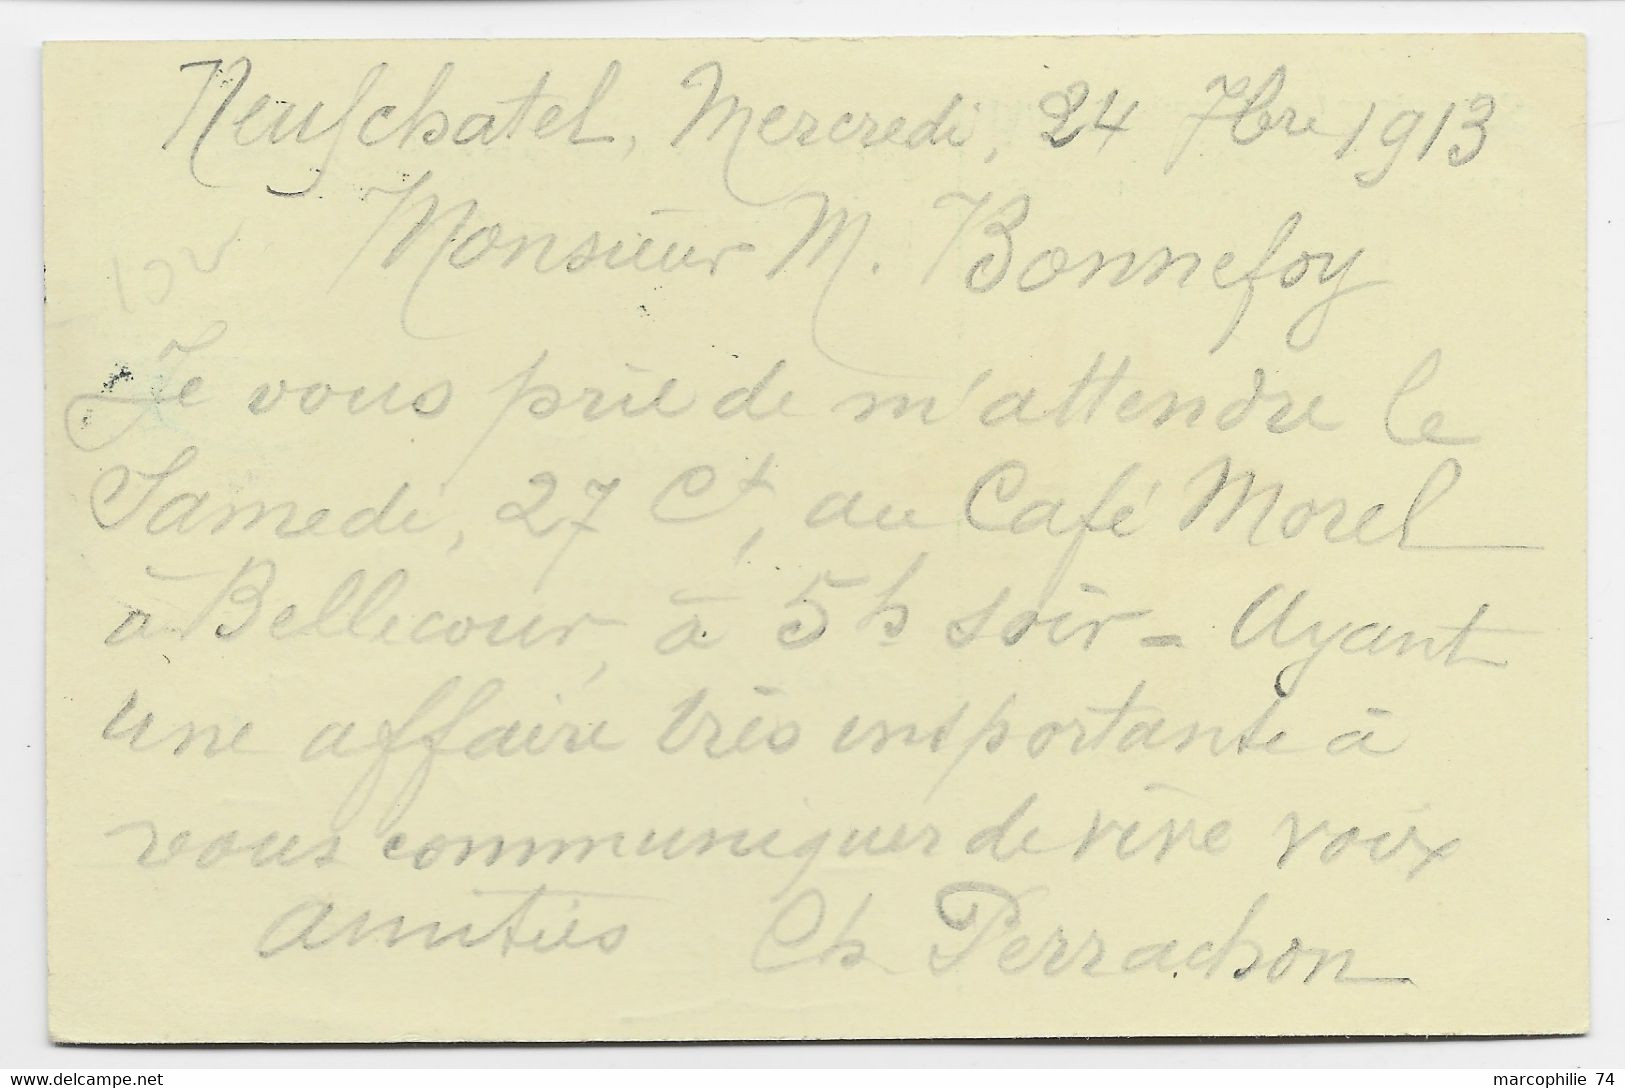 Neufchatel, Mercredi, 24 7bre 1913
Monsieur M. Bonnefoy
Je vous prie de m'attendre le
Samedi, 27 Ct, au Café Morel
à Bellecour, à 5h soir - Ayant
une affaire très importante à
vous communiquer de vive voix
amitiés Ch Perrachon
marcophilie 74